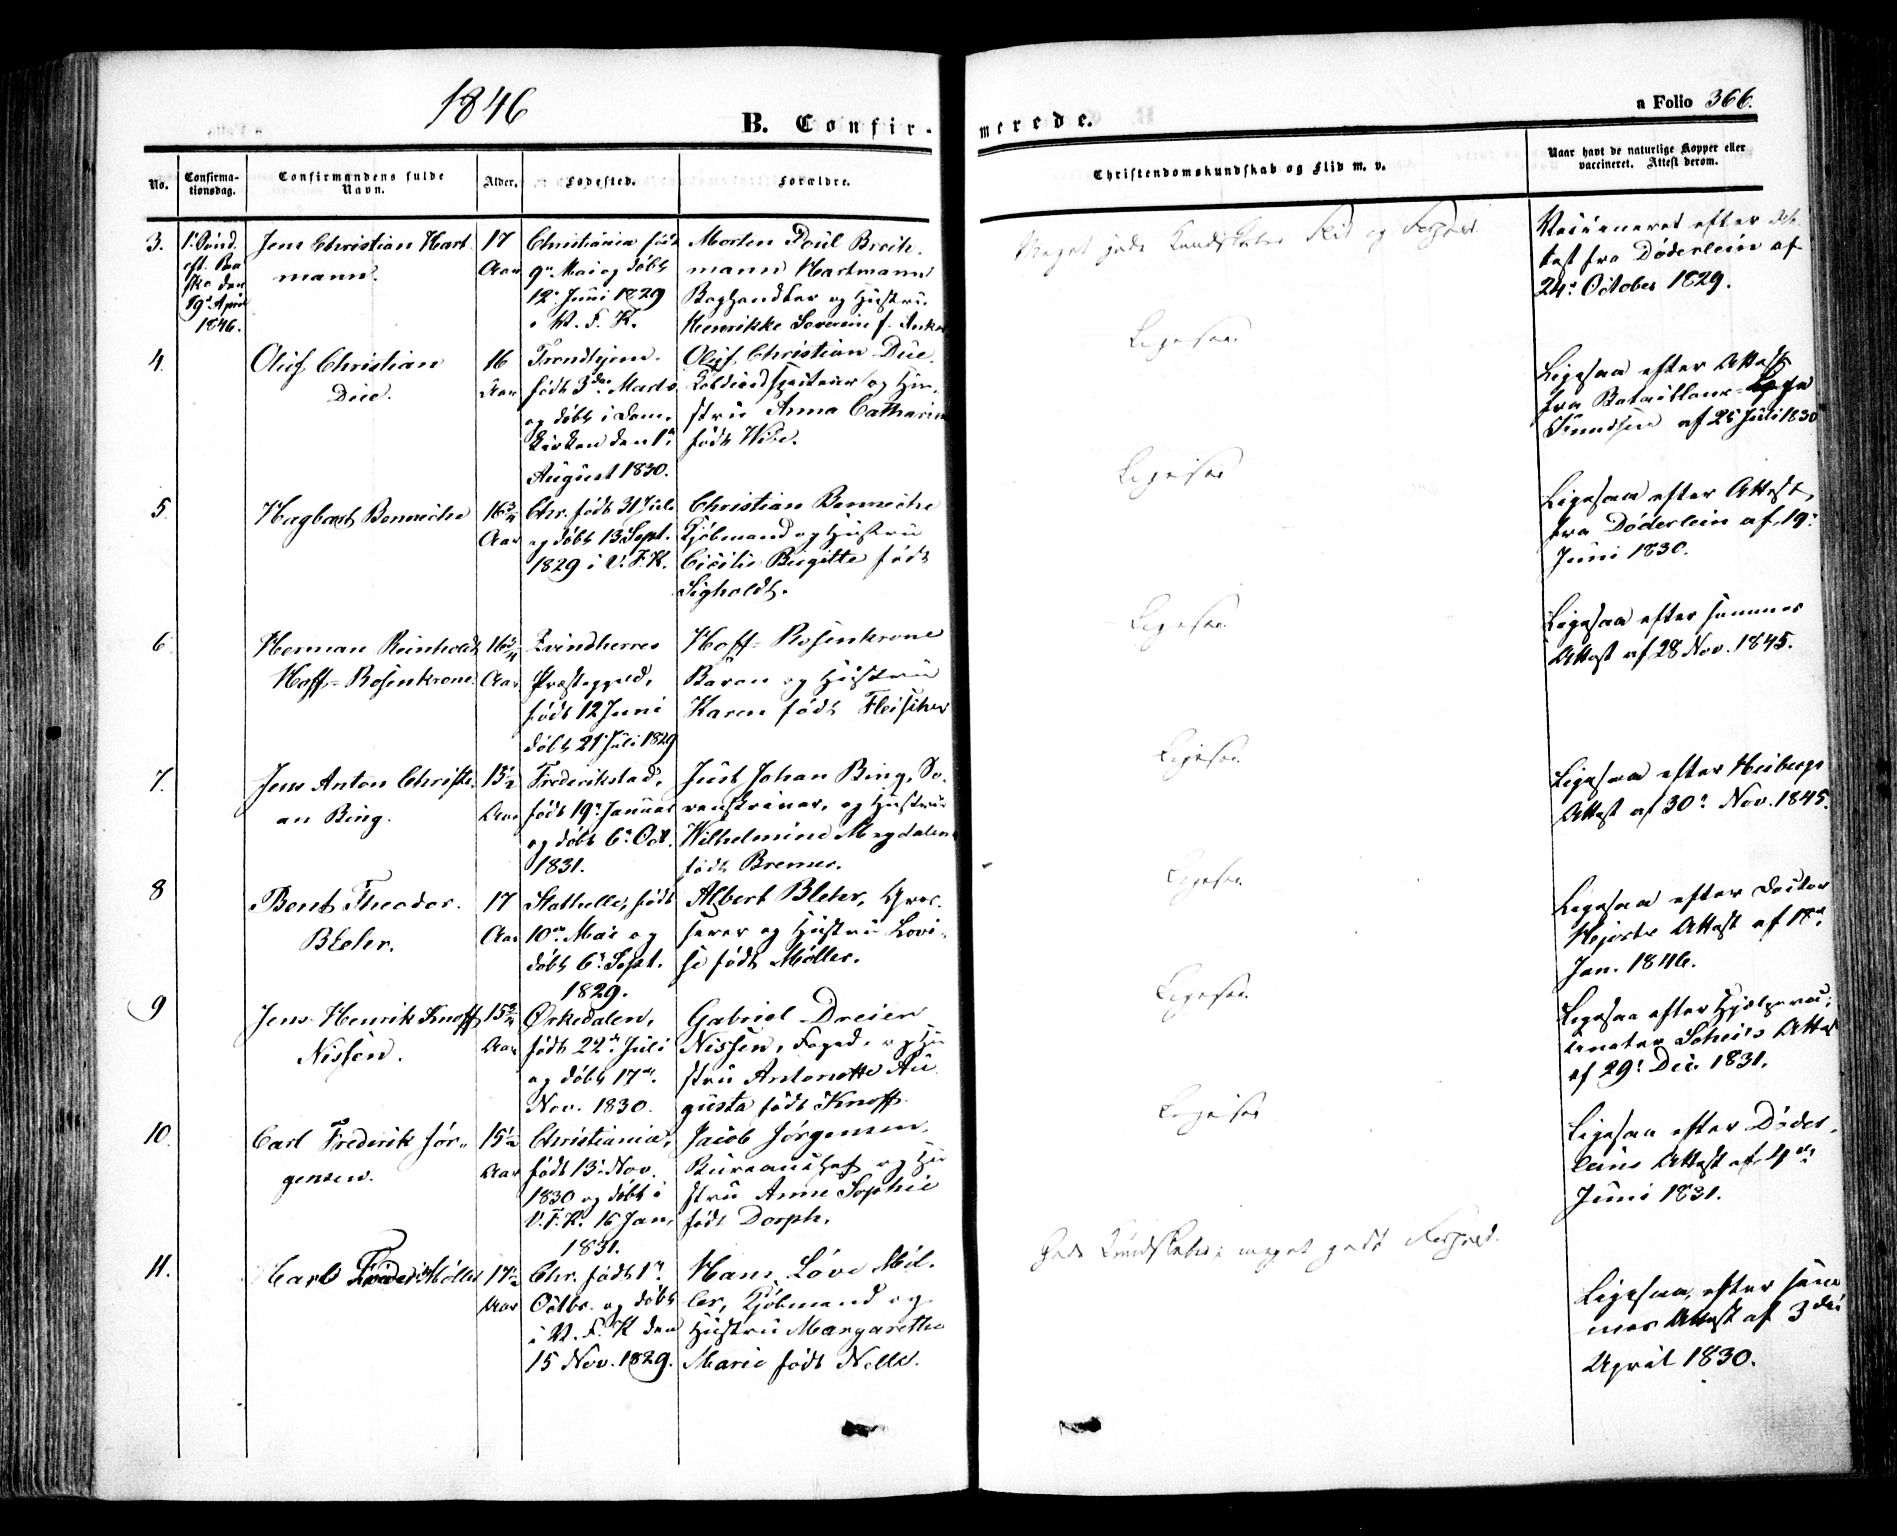 1846
B. Confir-
merede.
a Folio 366.
No.
Confirma-
tionsdag.
Confirmandens fulde
Navn.
Alder.
Fødested.
Forældre.
Christendomskundskab og Flid m. v.
Naar havt de naturlige Kopper eller
vaccineret. Attest derom.
3.
1' Sönd.
eft. Paa
ske den
19' April
1846.
Jens Christian Hart
mann.
17
Aar
Christiania født
9' Mai og döbt
12' Juni 1829
i V. F. K.
Morten Poul Breth
mann Hartmann
Boghandler og Hustru
Henrikke Severine f. Anker
Meget gode Kundskaber Flid og Forhold.
Vaccineret efter At
test fra Døderlein af
24' October 1829.
4.
Oluf Christian
Due.
16
Aar
Trondhjem.
født 3die Marts
og döbt i Dom,
kirken den 1'
August 1830.
Oluf Christian Due
og Hu,
stru Anna Catharine
født
Ligesaa.
Ligesaa efter Attest
fra Batailions-
Knudsen af 25 Juli 1830
5.
Hagbart Benneche
16 3/4
Aar
Chr. født 31' Juli
og döbt 13 Sept.
1829 i V. F. K.
Christian Benneche
Kjöbmand og Hustru
Cicilie Birgitte født
Sigholdt.
Ligesaa
Ligesaa efter Attest,
fra Døderlein af 19'
Juni 1830.
6.
Herman Reinholdt
Hoff-Rosenkrone.
16 3/4
Aar
Qvindherreds
Præstegjeld,
født 12 Juni
döbt 21' Juli 1829
Hoff-Rosenkrone
Baron og Hustru
Karen født Fleischer
Ligesaa.
Ligesaa efter sammes
Attest af 28 Nov. 1845.
7.
Jens Anton Christi.
an Bing.
15 1/2
Aar
Frederikstad,
født 19' Januar
og döbt 6' Oct.
1831.
Just Johan Bing, So,
renskriver, og Hustru
Wilhelmine Magdalene
født Bremer.
Ligesaa.
Ligesaa efter Heibergs
Attest af 30' Nov. 1845.
8
Bent Theodor.
Blehr.
17
Aar
Stathelle, født
10' Mai og
döbt 6' Sept.
1829.
Albert Blehr, Gros,
serer og Hustru Lovi,
se født Møller.
Ligesaa.
Ligesaa efter Doctor
Attest af
Jan. 1846.
9
Jens Henrik Knoff
Nissen.
15 3/4
Aar
Örkedalen,
født 22' Juli
og döbt 17'
Nov. 1830.
Gabriel Dreier
Nissen, Foged, og Hu
stru Antonette Au
gusta født Knoff.
Ligesaa.
Ligesaa efter Hjelpevac,
cinatør Attest
af 29' Dec. 1831.
10.
Carl Frederik Jör,,
gensen.
15 1/2
Aar
Christiania,
født 13' Nov.
1830 og döbt i
V. F. K. 16 Jan,
1831.
Jacob Jörgensen,
Bureauchef og Hu
stru Anne Sophie
født Dorph.
Ligesaa
Ligesaa efter Döder,
leins Attest af 4'
Juni 1831.
11.
Carl Frederik Møller
17 1/2
Aar
Chr. født 1'
Octbr. og döbt
i V. F. K den
15 Nov. 1829.
Hans Löve Möl,
ler, Kjöbmand og
Hustru Margarethe
Marie født Nelle.
Gode Kundskaber; meget godt Forhold.
Ligesaa, efter sam
mes Attest af 3die
April 1830.